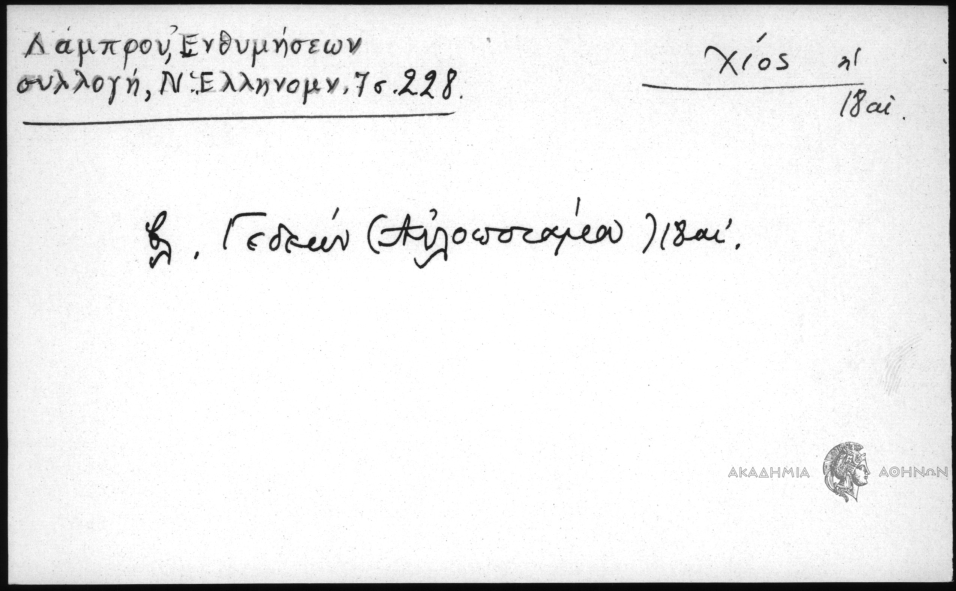 Λάμπρου, Ἐνθυμήσεων
συλλογή, Ν. Ἑλληνομν. 7 σ. 228.
Χίος
18 αἰ.
βλ. Γεδεών 18 αἰ.
ΑΚΑΔΗΜΙΑ ΑΘΗΝΩΝ